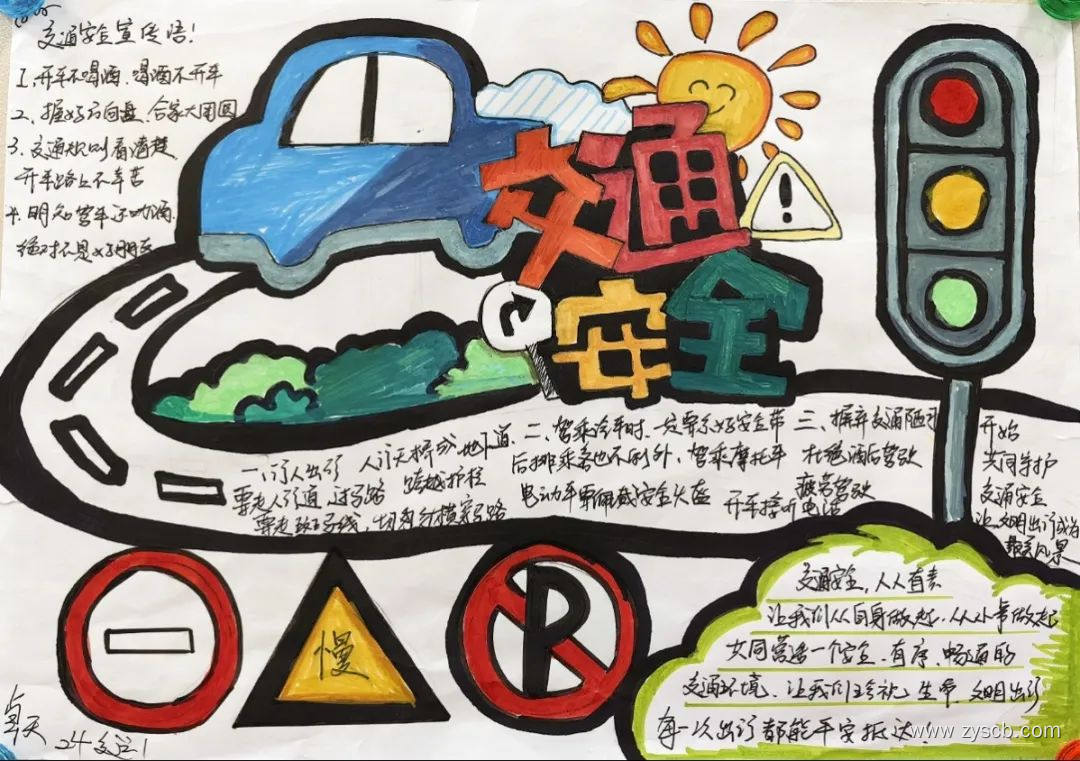 交通安全宣传语!
1、开车不喝酒、喝酒不开车
2、握好方向盘、合家大团圆
3、交通规则看清楚
开车路上不辛苦
4、明知驾车还劝酒
绝对不是好朋友
交通
安全
一、行人出行
要走人行道 过马路
要走斑马线,切勿
跨越护栏
二、驾乘汽车时、一定要系好安全带
后排乘客也不例外、驾乘摩托车
电动车要佩戴安全头盔
三、摒弃交通陋习
杜绝酒后驾驶
疲劳驾驶
开车接听电话
开始
共同守护
交通安全
让文明出行成为
慢
P
交通安全,人人有责
让我们从自身做起、从小事做起
共同营造一个安全、有序、畅通的
交通环境、让我们 生命、文明出行
每一次出行都能平安抵达!
www.zyscb.com